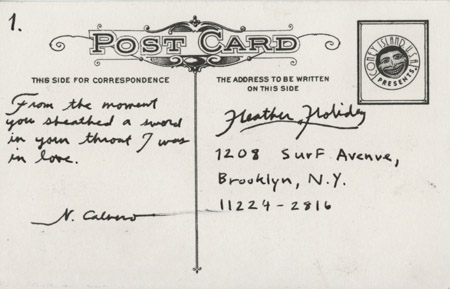 1.
POST CARD
THIS SIDE FOR CORRESPONDENCE
THE ADDRESS TO BE WRITTEN
ON THIS SIDE
CONEY ISLAND U.S.A.
PRESENTS
From the moment
you sheathed a sword
in your throat I was
in love.
N. Calvero
Heather Holiday
1208 Surf Avenue,
Brooklyn, N.Y.
11224-2816